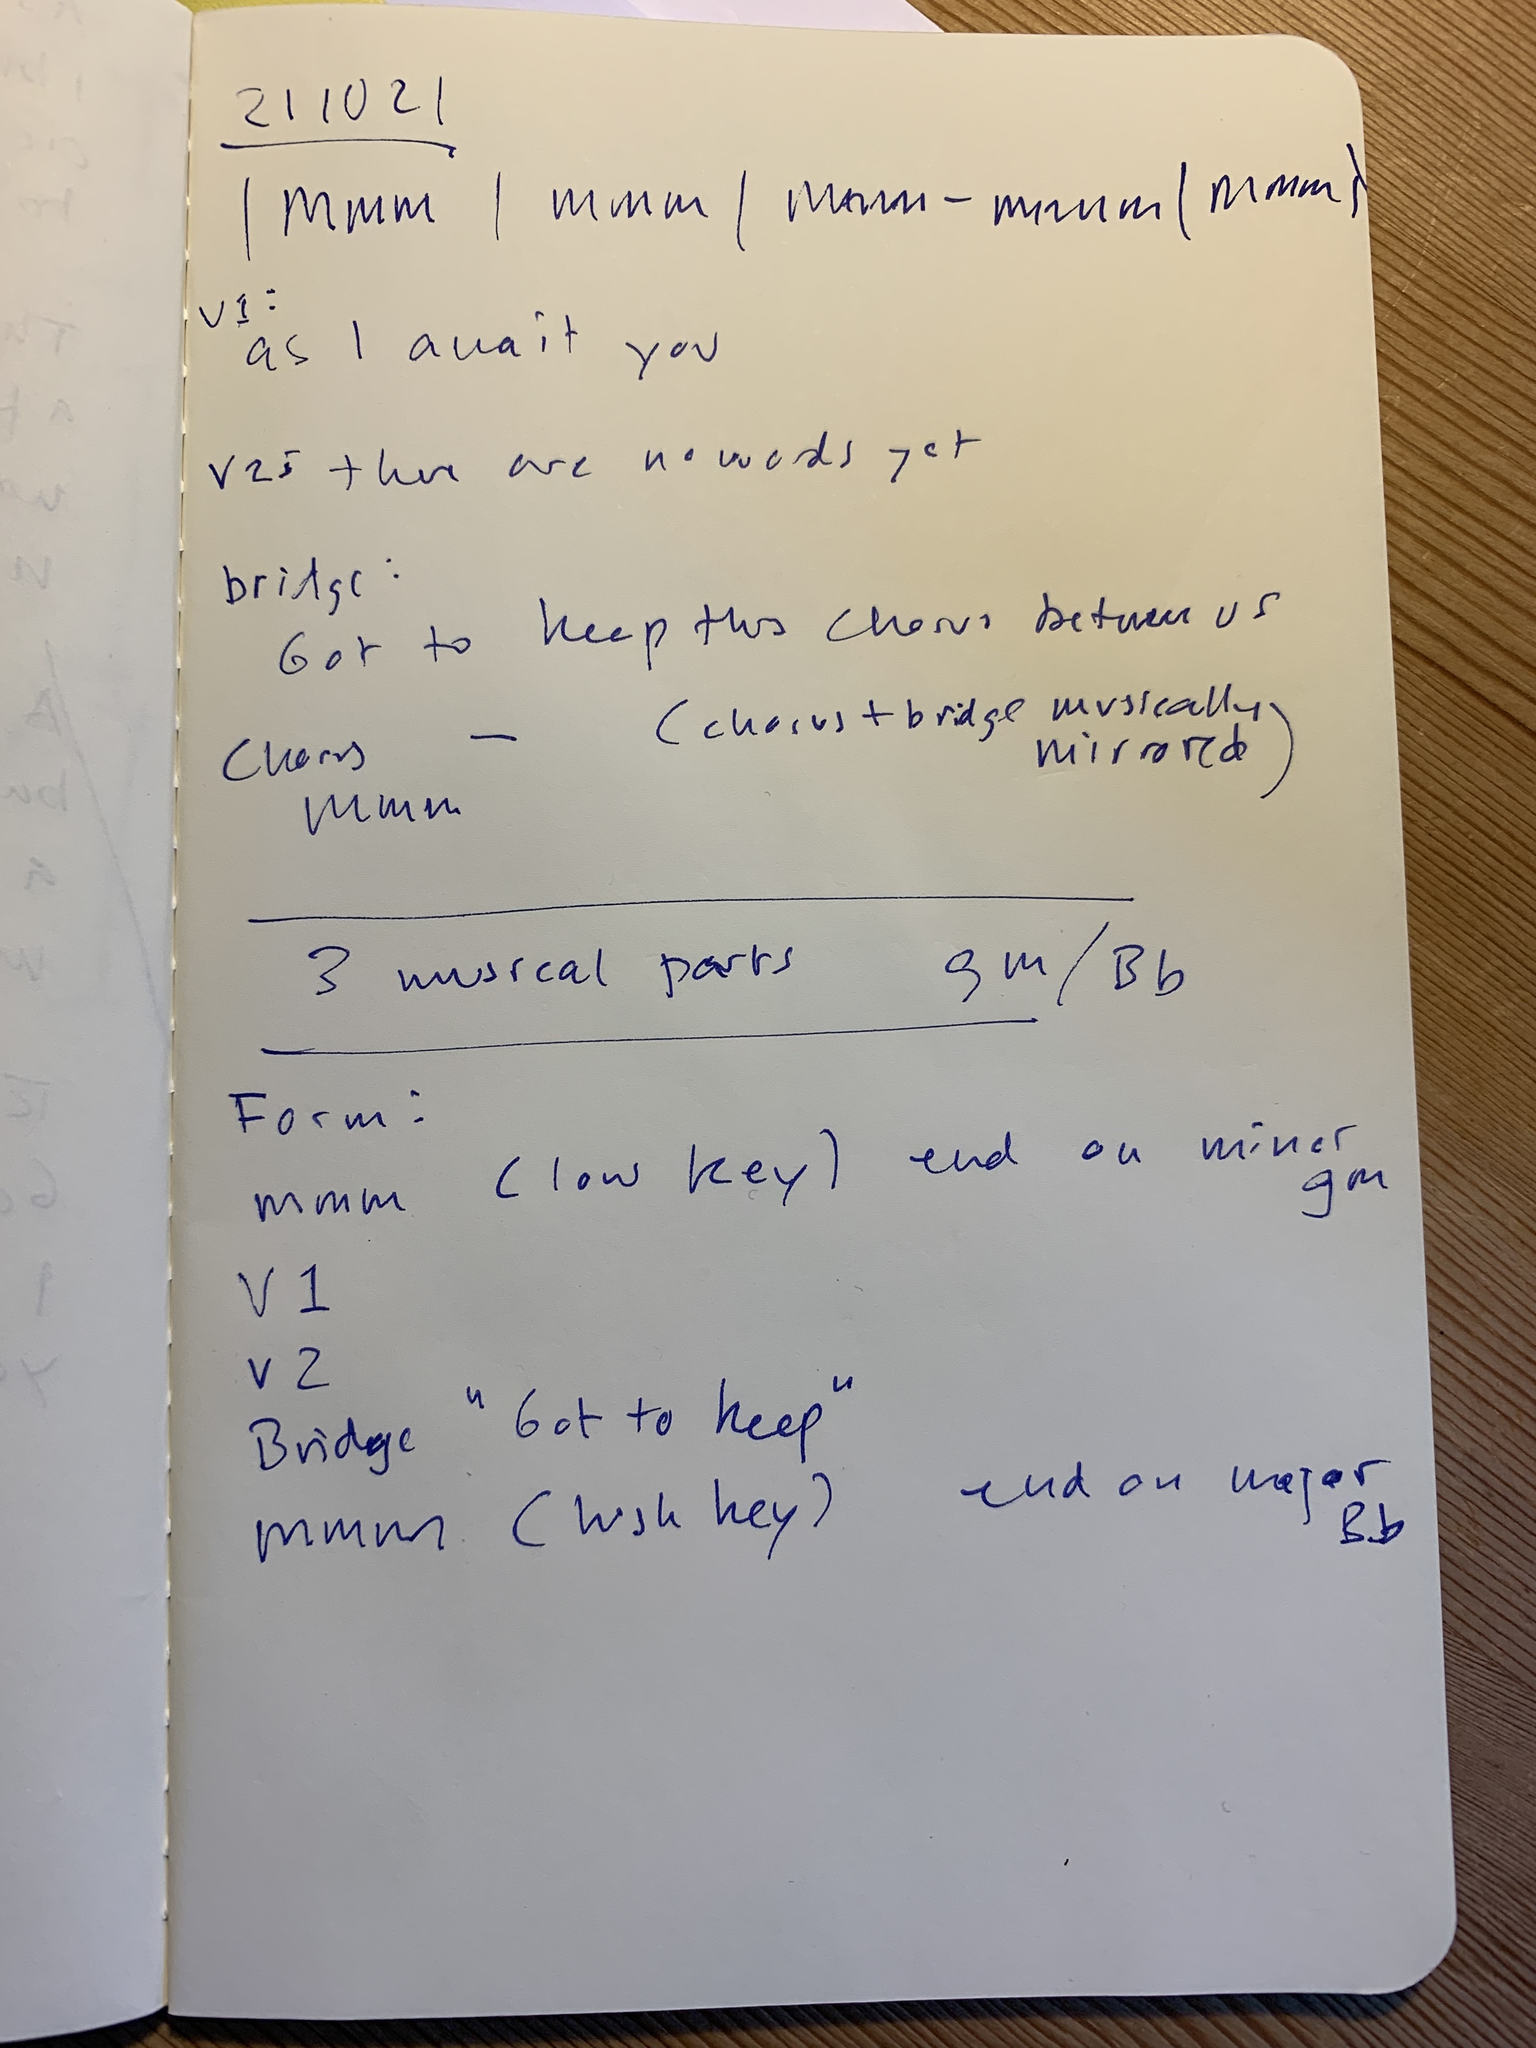 211021
| Mmm | mmm | Mmm - mmmm | mmm |
V1:
as I await you
V2: there are no words yet
bridge:
Got to keep this chorus between us
Chorus - (chorus + bridge musically
mirrored)
Mmm
3 musical parts gm/Bb
Form:
mmm (low key) end on minor
gm
V1
V2
Bridge "Got to keep"
mmmm (high key) end on major
Bb